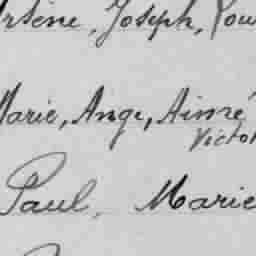 Arsène, Joseph, Lou
Marie, Ange, Aimé
Victor
Paul, Marie